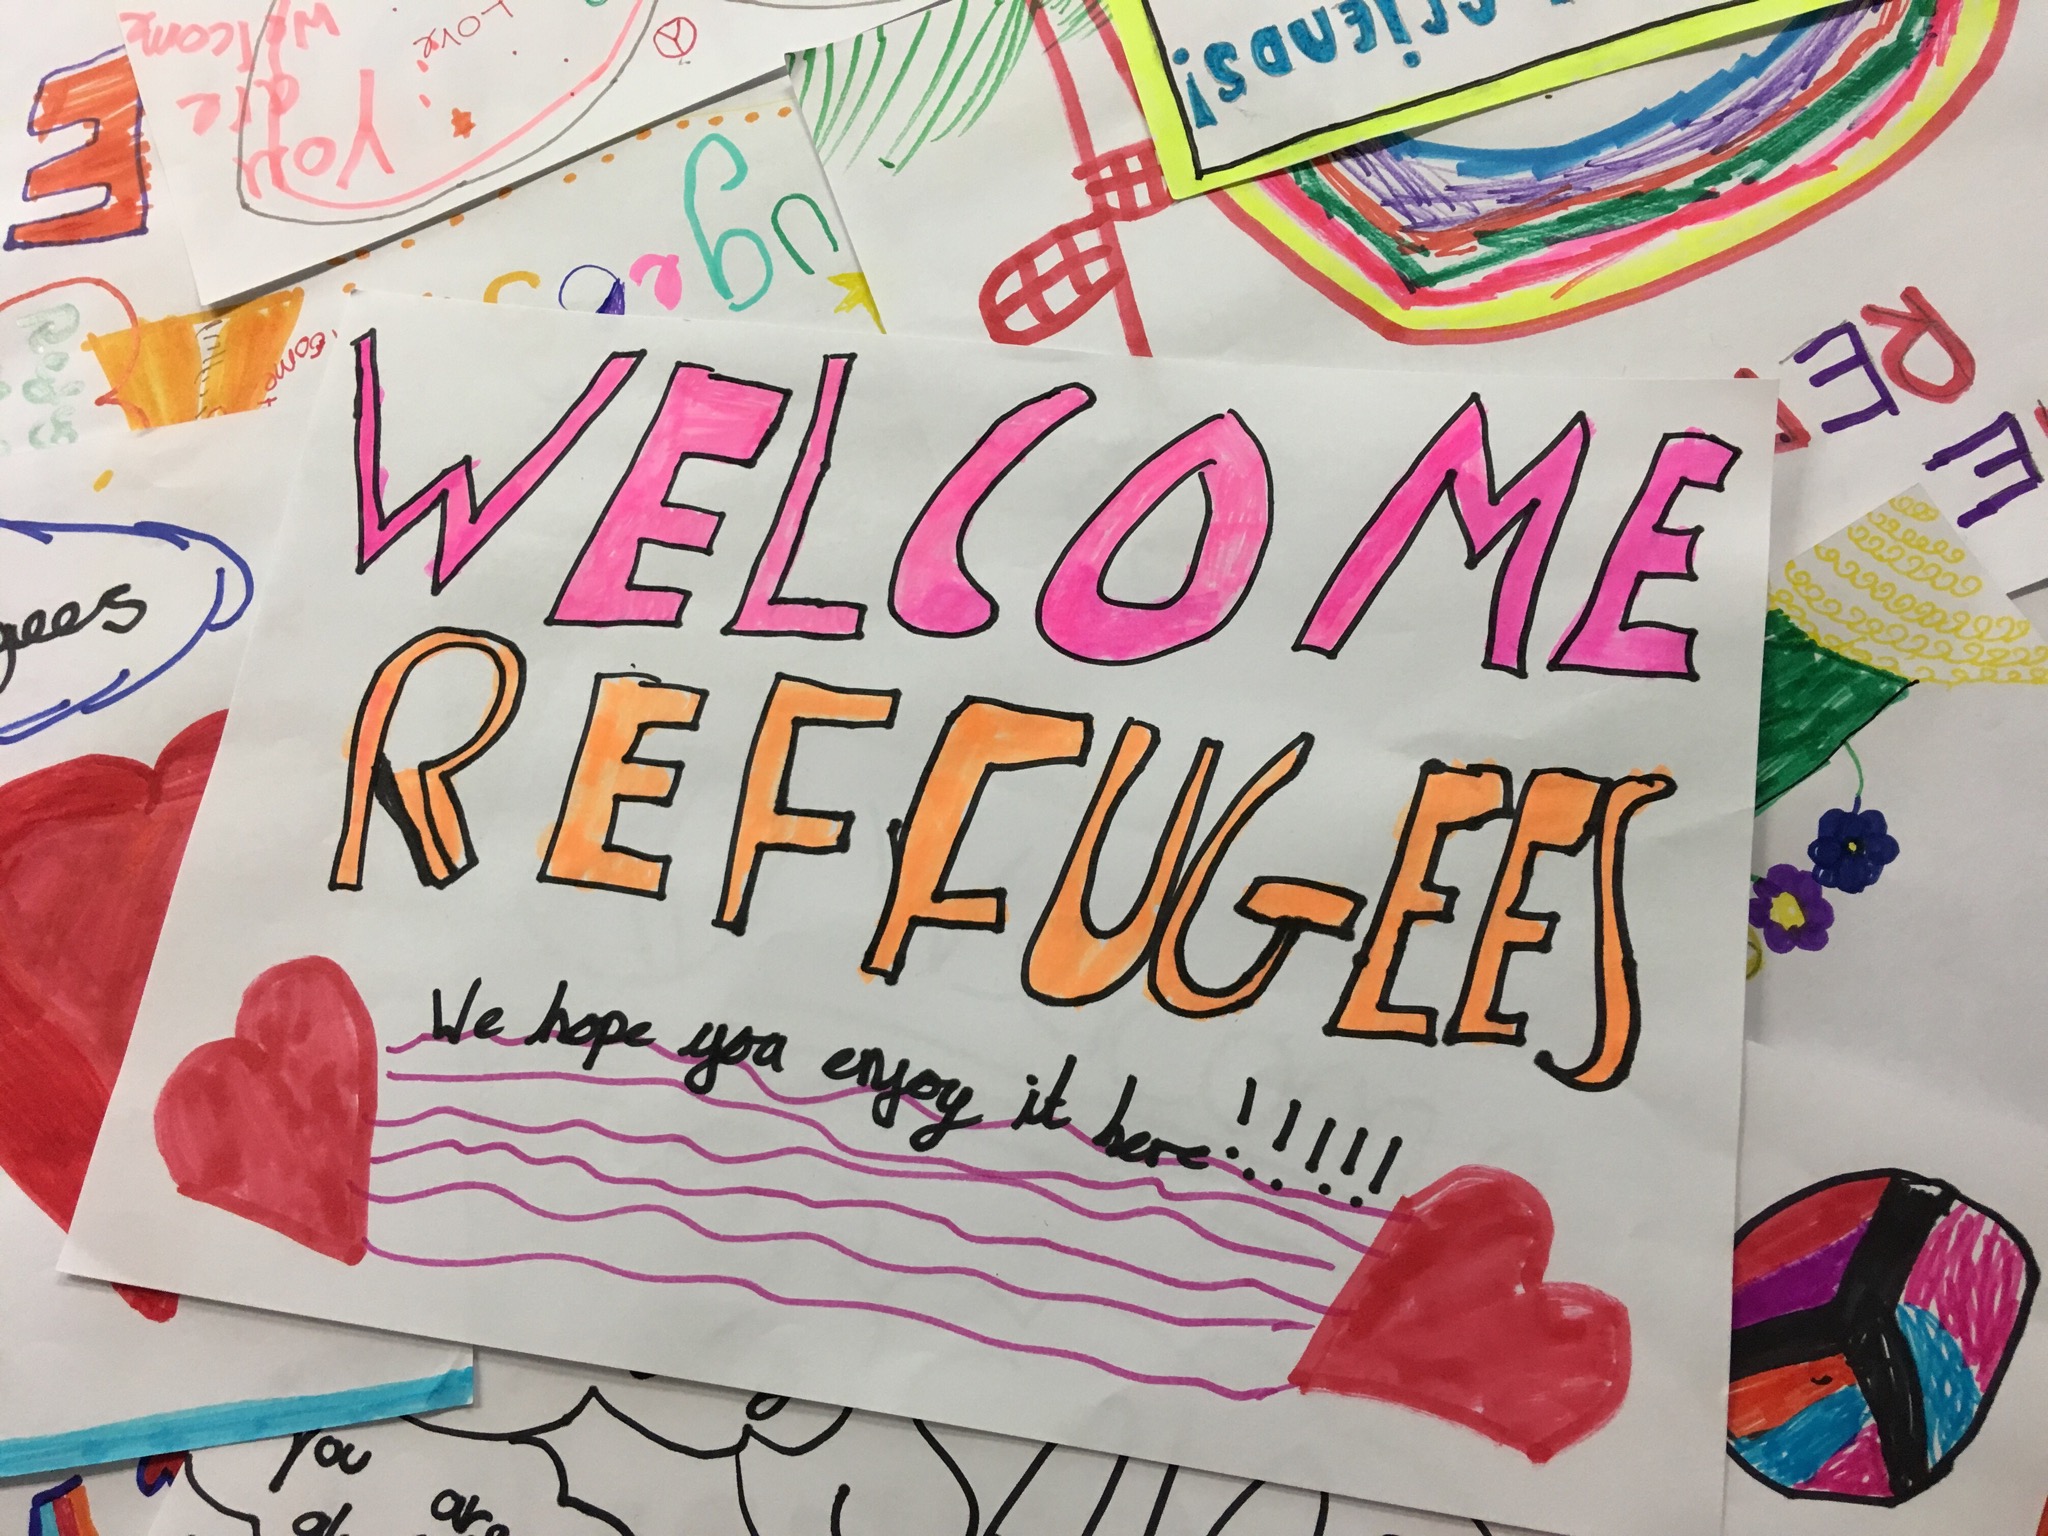 WELCOME
REFFUGEES
We hope you enjoy it here!!!!!
YOU
are
welcome
Love
friends!
uge
E
RE
E
gees
You
are